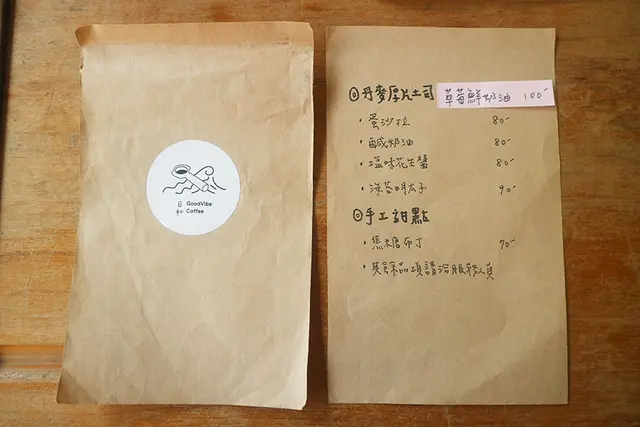 日 GoodVibe
和 Coffee
◎丹麥厚片土司 草莓鮮奶油 100-
・蛋沙拉 80-
・鹹奶油 80-
・塩味花生醬 80-
・海苔明太子 90-
◎手工甜點
・焦糖布丁 70-
・其餘品項請洽服務人員